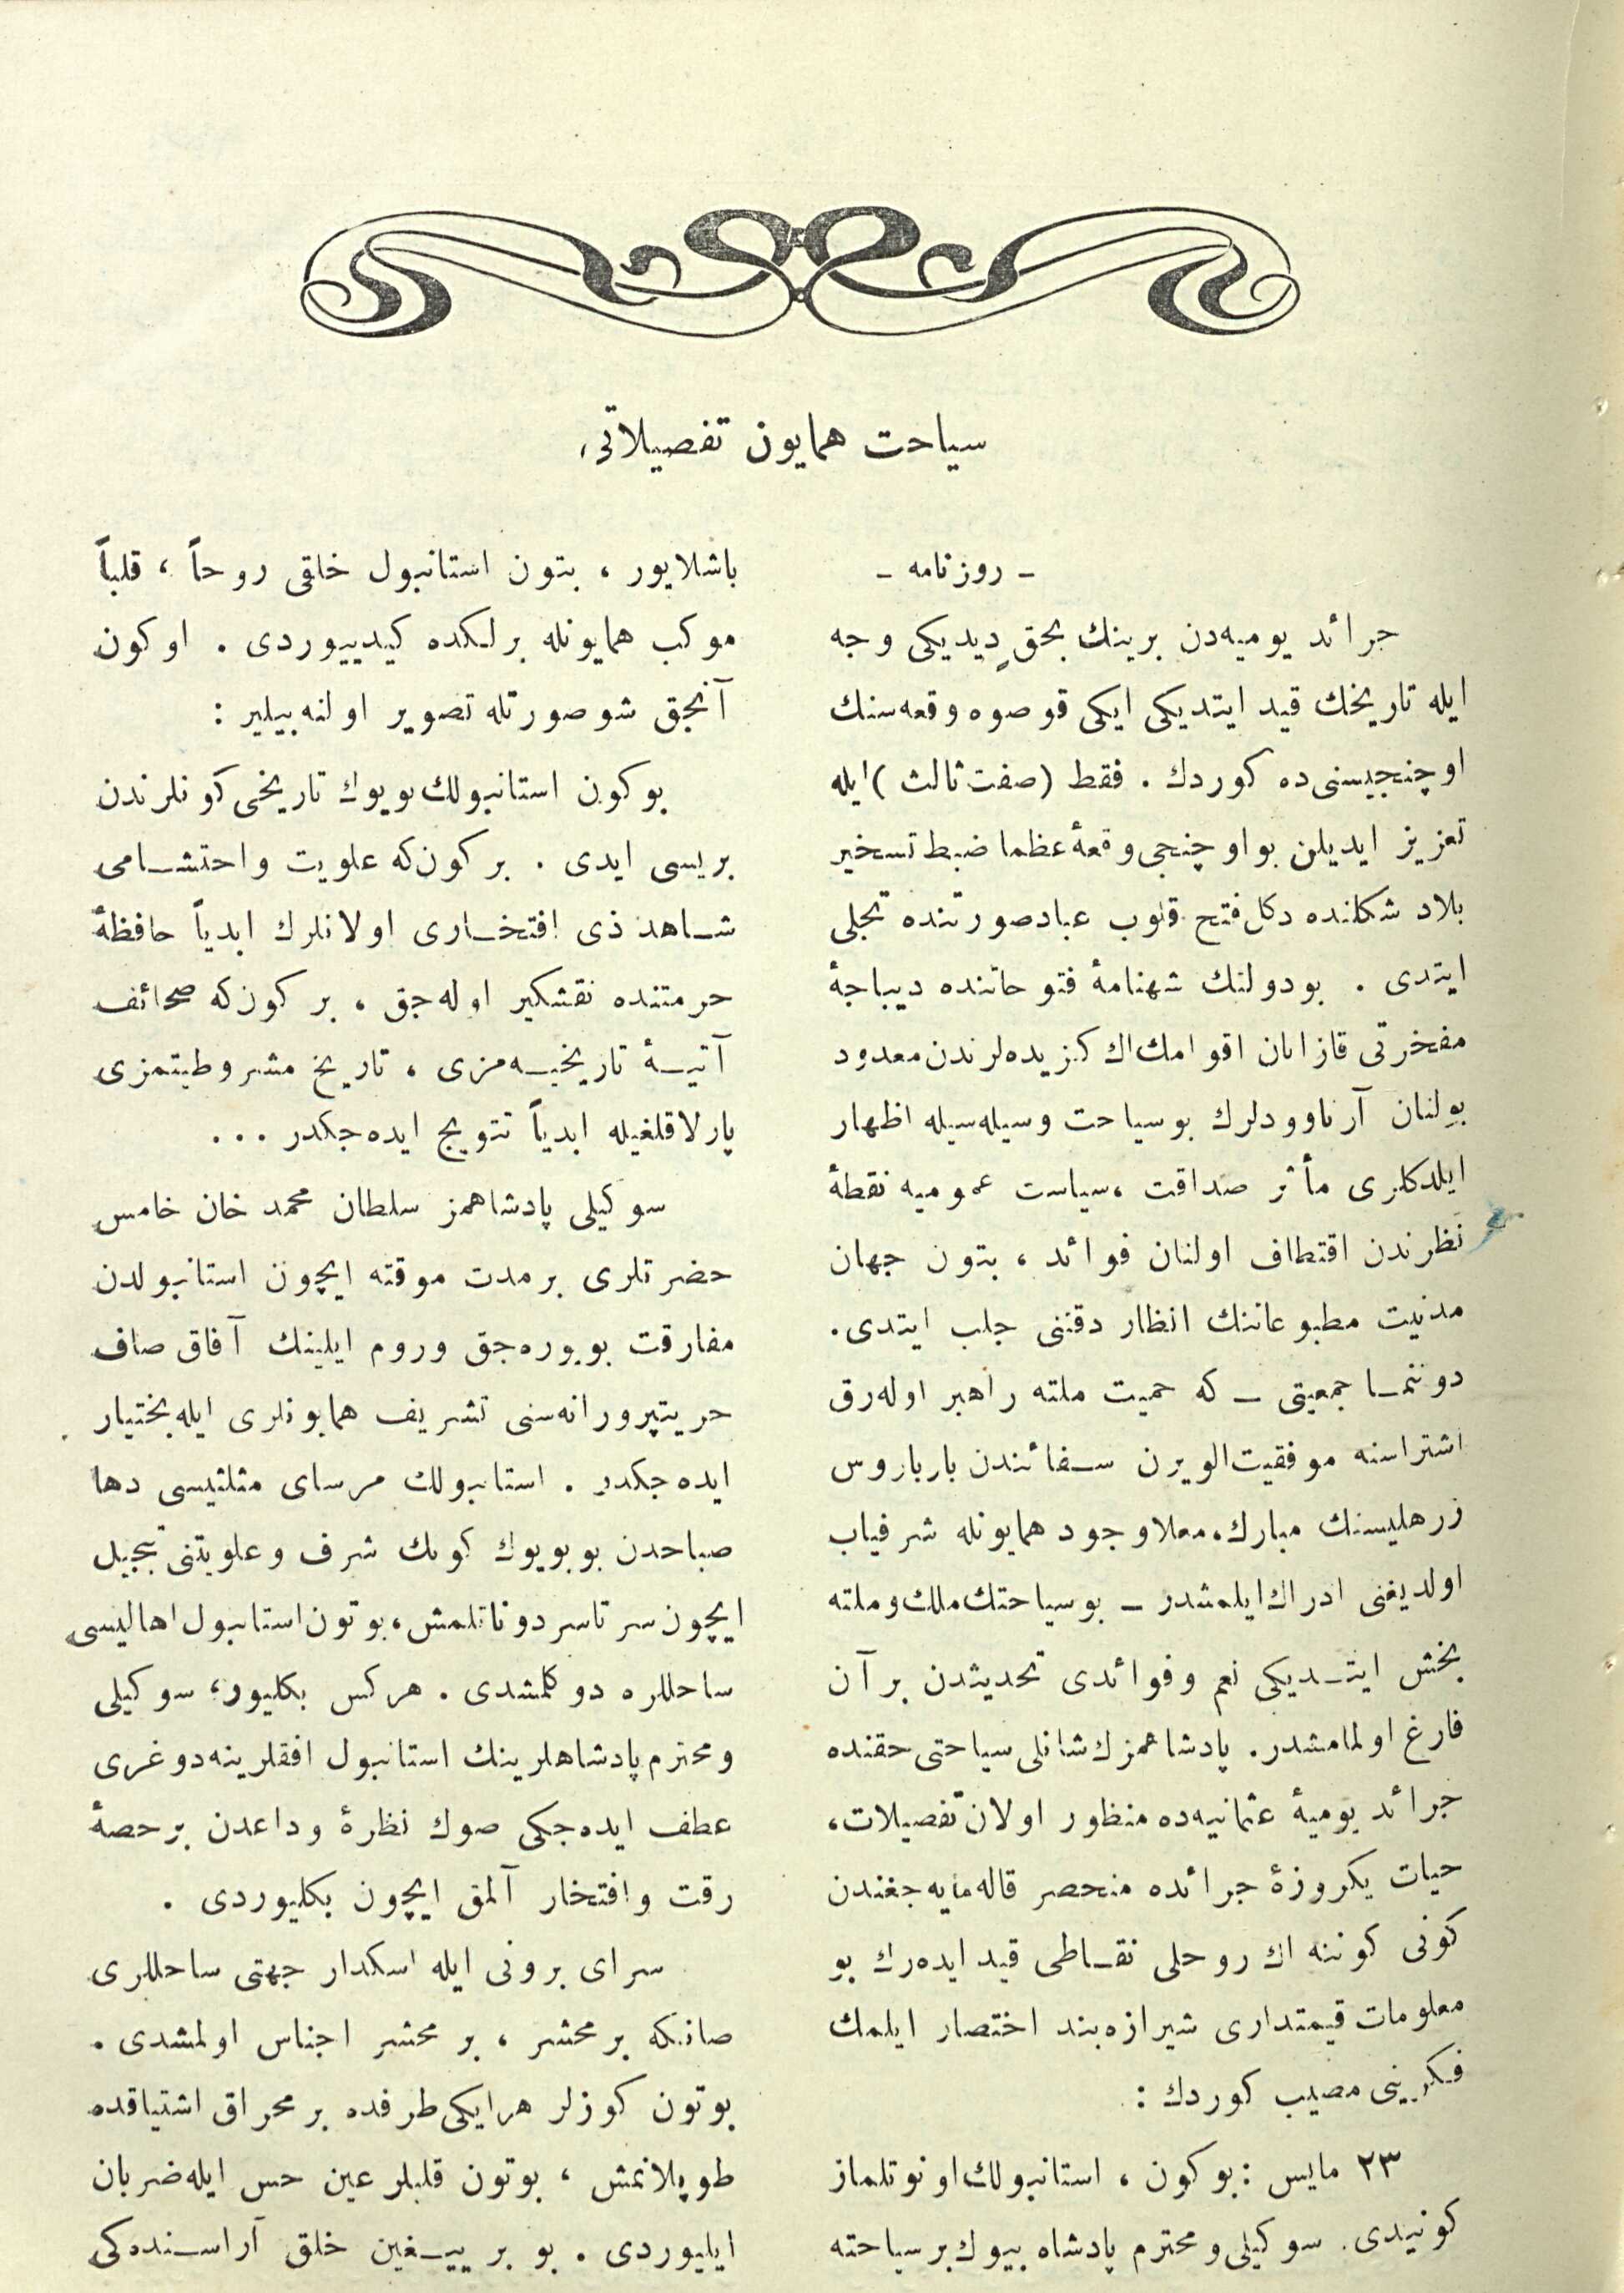 سیاحت همایون تفصیلاتی،
ـ روزنامه ـ
جرائد یومیه‌دن برینك بحقٍ دیدیکی وجه
ایله تاریخك قید ایتدیکی ایکی قوصوه وقعه‌سنك
اوچنجیسنی‌ده کوردك . فقط (صفت ثالث) ایله
تعزیز ایدیلن بو اوچنجی وقعۀ عظما ضبط تسخیر
بلاد شکلنده دکل فتح قلوب عباد صورتنده تجلی
ایتدی . بو دولتك شهنامۀ فتوحاتنده دیباجۀ
مفخرتی قازانان اقوامك اك کزیده‌لرندن معدود
بولنان آرناوودلرك بو سیاحت وسیله‌سیله اظهار
ایلدکلری مأثر صداقت ، سیاست عمومیه نقطۀ
نظرندن اقتطاف اولنان فوائد ، بتون جهان
مدنیت مطبوعاتنك انظار دقتنی جلب ایتدی .
دوننمـا جمعیتی ـ که حمیت ملته راهبر اوله‌رق
اشتراسنه موفقیت الویرن سـفائندن بارباروس
زرهلیسنك مبارك ، معلا وجود همایونله شرفیاب
اولدیغنی ادراك ایلمشدر ـ بو سیاحتك ملك و ملته
بخش ایتـدیکی نعم و فوائدی تحدیثدن بر آن
فارغ اولمامشدر. پادشاهمزك شانلی سیاحتی حقنده
جرائد یومیۀ عثمانیه‌ده منظور اولان تفصیلات ،
حیات یکروزۀ جرائده منحصر قاله‌مایه‌جغندن
کونی کوننه اك روحلی نقـاطی قید ایده‌رك بو
معلومات قیمتداری شیرازه‌بند اختصار ایلمك
فکرینی مصیب کوردك :
٢٣ مایس : بو کون ، استانبولك اونوتلماز
کونیدی. سوکیلی و محترم پادشاه بیوك بر سیاحته
باشلایور ، بتون استانبول خلقی روحاً ، قلباً
موکب همایونله برلکده کیدییوردی . او کون
آنجق شو صورتله تصویر اولنه‌بیلیر :
بو کون استانبولك بویوك تاریخی کونلرندن
بریسی ایدی . بر کون‌که علویت و احتشـامی
شـاهد ذی افتخـاری اولانلرك ابدیاً حافظۀ
حرمتنده نقشکیر اوله‌جق ، بر کون‌که صحائف
آتیـۀ تاریخیـه‌مزی ، تاریخ مشروطیتمزی
پارلاقلغیله ابدیاً تتویج ایده‌جکدر ...
سوکیلی پادشاهمز سلطان محمد خان خامس
حضرتلری بر مدت موقته ایچون استانبولدن
مفارقت بویوره‌جق و روم ایلینك آفاق صاف
حریتپرورانه‌سنی تشریف همایونلری ایله بختیار
ایده‌جکدر . استانبولك مرسای مثلثیسی دها
صباحدن بو بویوك کونك شرف و علویتنی تبجیل
ایچون سرتاسر دوناتلمش ، بوتون استانبول اهالیسی
ساحللره دوکلمشدی . هرکس بکلیور ، سوکیلی
و محترم پادشاهلرینك استانبول افقلرینه دوغری
عطف ایده‌جکی صوك نظرۀ وداعدن بر حصۀ
رقت و افتخار آلمق ایچون بکلیوردی .
سرای برونی ایله اسکدار جهتی ساحللری
صانکه بر محشر ، بر محشر اجناس اولمشدی .
بوتون کوزلر هر ایکی طرفده بر محراق اشتیاقده
طوپلانمش ، بوتون قلبلر عین حس ایله ضربان
ایلیوردی . بو بر ییـغین خلق آراسـنده‌کی